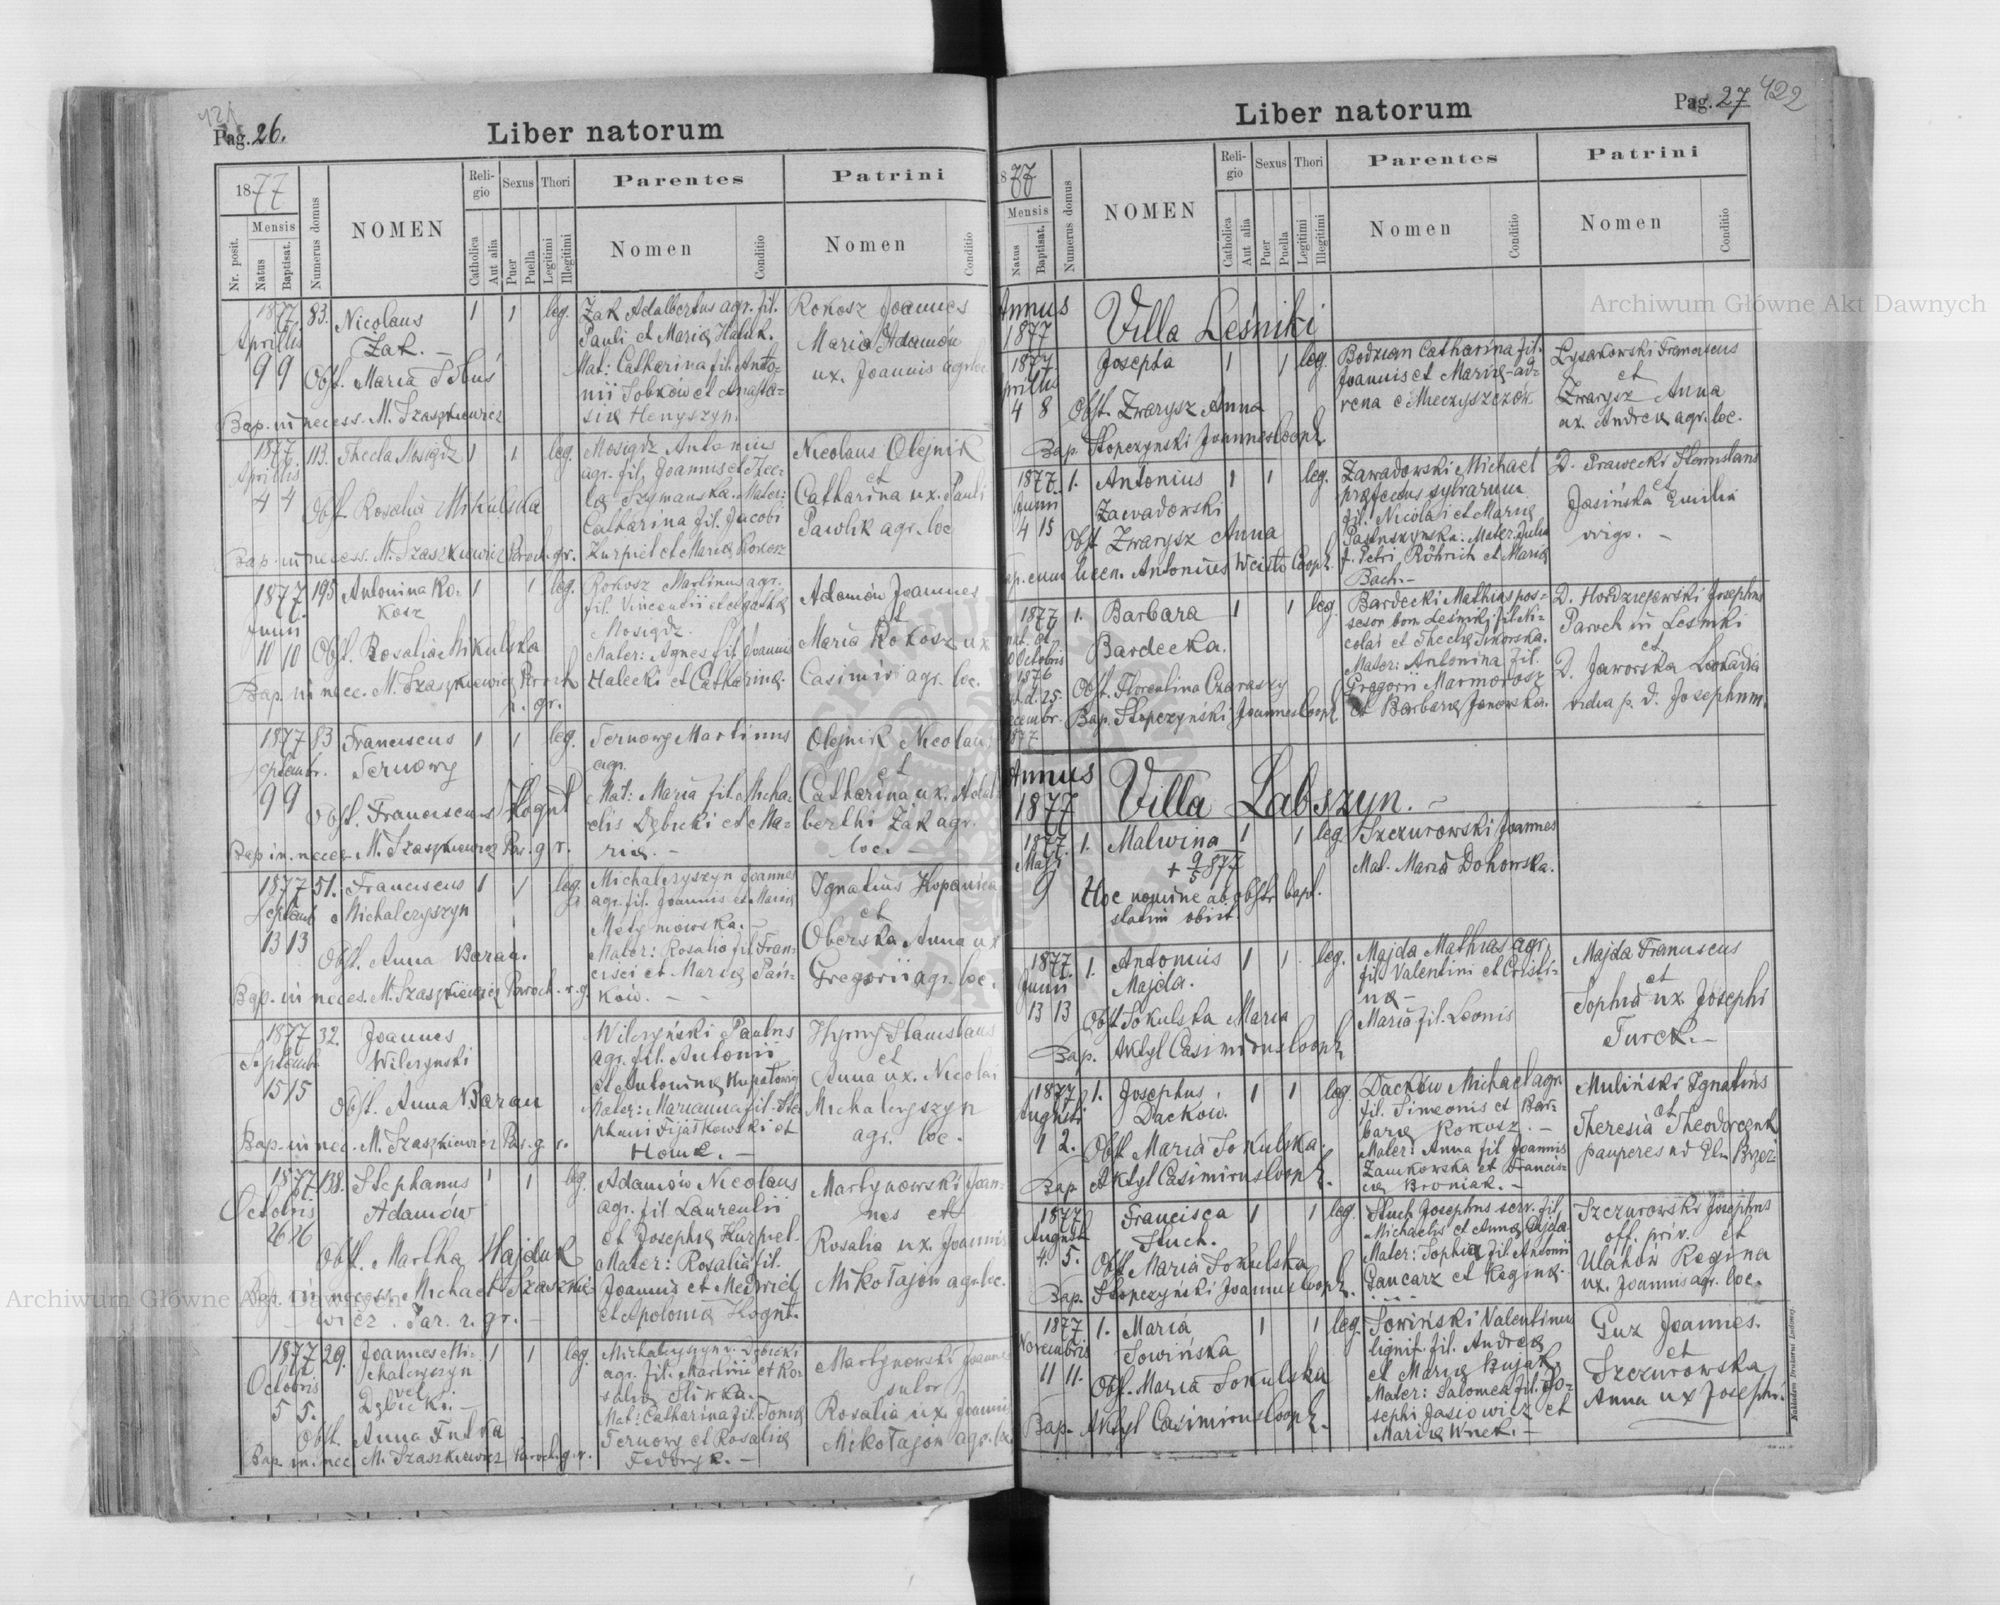 421
Pag. 26.
Liber natorum
1877
Nr. posit.
Mensis
Natus
Baptisat.
Numerus domus
NOMEN
Reli-
gio
Catholica
Aut alia
Sexus
Puer
Puella
Thori
Legitimi
Illegitimi
Parentes
Nomen
Conditio
Patrini
Nomen
Conditio
1877 83. Nicolaus 1 1 leg. Żak Adalbertus agr. fil. Rokosz Joannes
Aprilis Żak. Pauli et Mariæ
Maria Adamów
9 9 Obst. Maria Mat: Catharina fil. Anto= ux. Joannis agr. loc.
nii Sobków et Anasta=
siæ Henyszyn.
Bap. in necess. M. Szaszkiewicz
1877 113. Thecla Mosiądz 1 1 leg. Mosiądz Antonius Nicolaus Olejnik
Aprilis agr. fil. Joannis et Thec= et
4 4 Obst. Rosalia Mikulska læ Szymanska. Mater: Catharina ux. Pauli
Catharina fil. Jacobi Pawlik agr. loc
Bap. in necess. M. Szaszkiewicz Paroch. gr. Kurpiel et Mariæ Rokosz
1877 195 Antonina Ro- 1 1 leg. Rokosz Martinus agr. Adamów Joannes
kosz fil. Vincentii et Agathæ et
Junii Mosiądz. Maria Rokosz ux
10 10 Obst. Rosalia Mikulska Mater: Agnes fil. Joannis Casimiri agr. loc.
Bap. in nece. M. Szaszkiewicz Paroch Halecki et Catharinæ.
r. gr.
1877 83 Franciscus 1 1 leg. Ternowy Martinus Olejnik Nicolaus
Septembr. Ternowy agr. et
9 9 Mat: Maria fil. Micha= Catharina ux. Adal
Obst. Franciscus Kogut elis Dębicki et Ma= berthi Żak agr.
Bap in. neces. M. Szaszkiewicz Par. g r. riæ. loc.
1877 51. Franciscus 1 1 leg. Michalczyszyn Joannes Ignatius Kopanica
Septemb Michalczyszyn agr. fil. Joannis et Mariæ et
13 13 Obst. Anna Baran. Mater: Rosalia fil. Fran= Oberska Anna ux
cisci et Mariæ Pań= Gregorii agr. loc.
Bap. in neces. M. Szaszkiewicz Paroch. r. g. ków.
1877 32. Joannes Wilczyński Paulus Hyrny Stanislaus
Septemb. Wilczynski agr. fil. Antonii et
15 15 et Antoninæ Anna ux. Nicolai
Obst. Anna Baran Mater: Marianna fil. Ste Michalczyszyn
phani Fijałkowski et agr. loc.
Bap. in nec. M. Szaszkiewicz Par. g r.
1877 138. Stephanus 1 1 leg. Adamów Nicolaus Martynowski Joan=
Octobris Adamów agr. fil Laurentii nes et
26 26 et Josephæ Kurpiel. Rosalia ux. Joannis
Obst. Martha Hajduk Mater: Rosalia fil. Mikołajów agr. loc.
Bap. in necess. Michael Szaszkie= Joannis et
wicz. Par. r. gr. Apoloniæ Kogut.
1877 29. Joannes Mi= 1 1 leg. Michalczyszyn v. Dębicki Martynowski Joannes
Octobris chalczyszyn agr. fil. Martini et Ro= sutor
5 5. vel saliæ Śliwka. Rosalia ux. Joannis
Dębicki. Mat: Catharina fil. Tomæ Mikołajów agr. loc.
Obst. Anna Futra Ternowy et Rosaliæ
Bap. in. nec M. Szaszkiewicz Paroch. g. r. Fedoryk.
Pag. 27 422
Liber natorum
1877
Mensis
Natus
Baptisat.
Numerus domus
NOMEN
Reli-
gio
Catholica
Aut alia
Sexus
Puer
Puella
Thori
Legitimi
Illegitimi
Parentes
Nomen
Conditio
Patrini
Nomen
Conditio
Annus
1877 Villa Leśniki
1877 Josepha 1 1 leg. Bodzian Catharina fil. Łysakowski Franciscus
Aprilis Joannis et Mariæ et
4 8 Obst. Zwarysz Anna Zwarysz Anna
ux. Andreæ agr. loc.
Bap. Stopczynski Joannes Cooph.
1877 1. Antonius 1 1 leg. Zawadowski Michael D. Prawecki Stanislaus
Junii Zawadowski præfectus sylvarum et
4 15 Obst Zwarysz Anna fil. Nicolai et Mariæ Jasińska Emilia
Mater: Julia virgo.
Bap. cum licen. Antonius Cooph. f. Petri Röhrich et Mariæ
Bach.
1877 1. Barbara 1 1 leg. Bardecki Mathias pos= D. Hordziejewski Josephus
Bardecka. sesor bon. Leśniki fil. Ni= Paroch in Leśniki
Octobris colai et Theclæ Sikorska. et
1876 Mater: Antonina fil. D. Jaworska Leokadia
Obst. Florentina Gregorii Marmorosz vidua p. D. Josephum.
Bap. Stopczyński Joannes Cooph et Barbaræ Janowska.
Annus
1877 Villa Łabszyn.
1877 1. Malwina 1 1 leg. Szczurowski Joannes
Maji + 9/5 877 Mat. Maria Dohowska.
9 Hoc nomine ab obstr bapt.
statim obiit.
1877 1. Antonius 1 1 leg. Majda Mathias agr. Majda Franciscus
Junii Majda. fil Valentini et Cristi= et
13 13 Obst Sokulska Maria næ Sophia ux. Josephi
Maria fil. Leonis Turek.
Bap. Aktyl Casimirus Cooph
1877 1. Josephus 1 1 leg. Daćków Michael agr. Muliński Ignatius
Augusti Daćków. fil. Simeonis et Bar= et
1 2. Obst Maria Sokulska. baræ Rokosz. Theresia Theodorczuk
Mater: Anna fil Joannis pauperes
Zamkowska et Francis=
Bap Aktyl Casimirus Cooph. cæ Broniak.
1877 Francisca 1 1 leg. Stuch Josephus serv. fil Szczurowski Josephus
Augusti Stuch. Michaelis et Annæ Gajda off. priv. et
4. 5. Obst Maria Sokulska Mater: Sophia fil. Antonii Ulahów Regina
Bap. Stopczyński Joannes Cooph. Gancarz et Reginæ. ux. Joannis agr. loc.
1877 1. Maria 1 1 leg. Sowiński Valentinus Guz Joannes.
Novembris Sowińska lignif. fil. Andreæ et
11 11. Obst. Maria Sokulska et Mariæ Bujak. Szczurowska
Mater: Salomea fil. Jo= Anna ux Josephi.
sephi Jasiowicz et
Bap. Aktyl Casimirus Cooph. Mariæ Wnek.
Archiwum Główne Akt Dawnych
Archiwum Główne Akt Dawnych